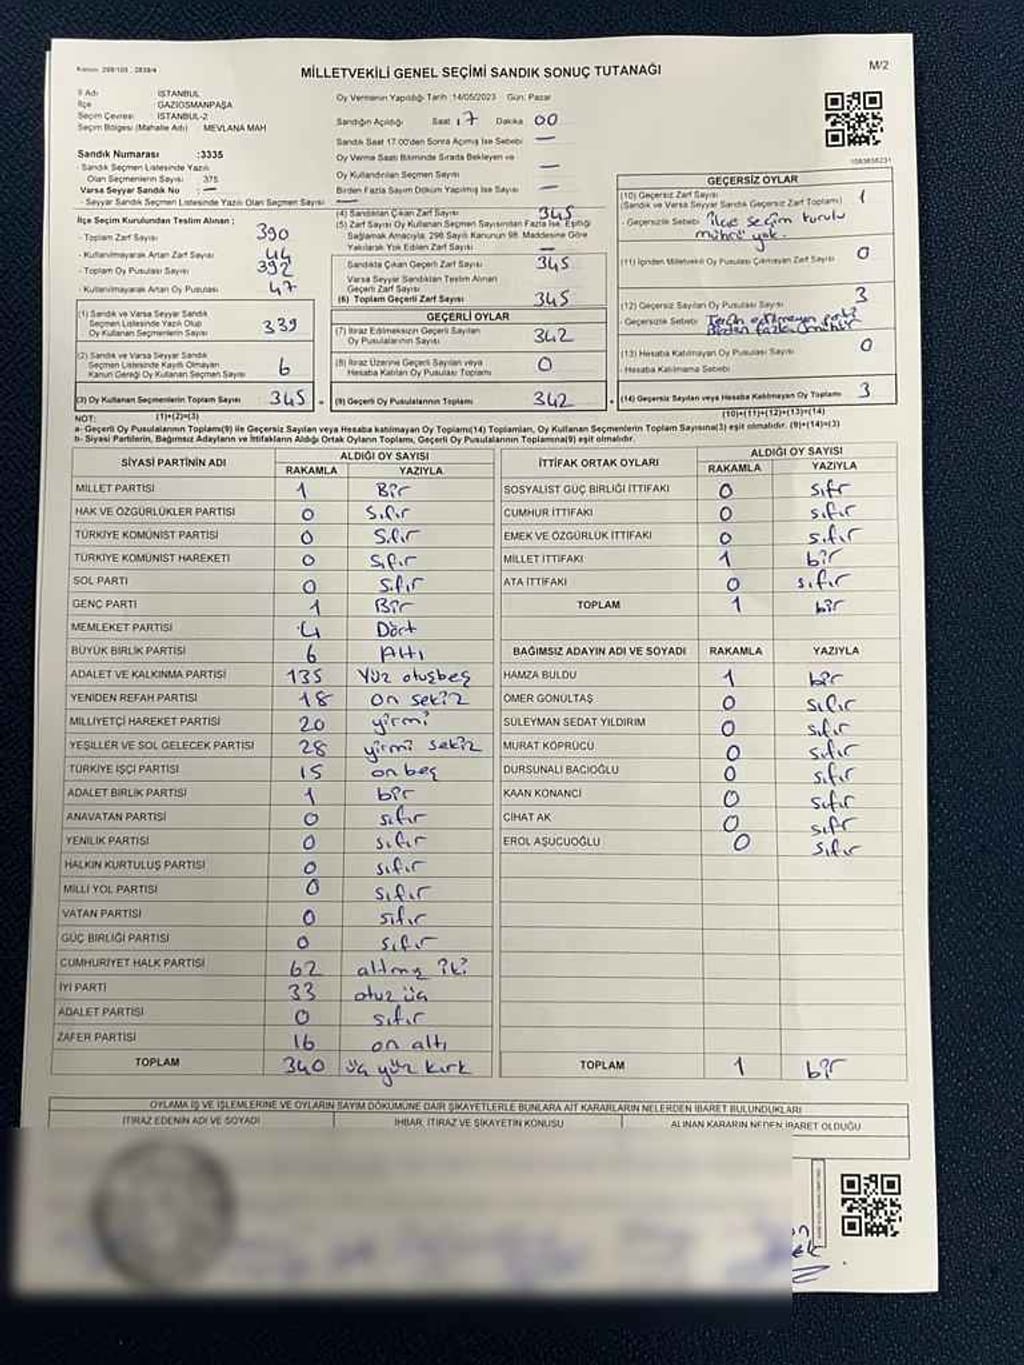 MİLLETVEKİLİ GENEL SEÇİMİ SANDIK SONUÇ TUTANAĞI
M/2
İl Adı İSTANBUL
İlçe GAZİOSMANPAŞA
Seçim Çevresi İSTANBUL-2
Seçim Bölgesi (Mahalle Adı) : MEVLANA MAH
Sandık Numarası :3335
- Sandık Seçmen Listesinde Yazılı
Olan Seçmenlerin Sayısı : 375
Varsa Seyyar Sandık No : —
- Seyyar Sandık Seçmen Listesinde Yazılı Olan Seçmen Sayısı —
İlçe Seçim Kurulundan Teslim Alınan ;
- Toplam Zarf Sayısı 390
- Kullanılmayarak Artan Zarf Sayısı 44
- Toplam Oy Pusulası Sayısı 392
- Kullanılmayarak Artan Oy Pusulası 47
(1) Sandık ve Varsa Seyyar Sandık
Seçmen Listesinde Yazılı Olup
Oy Kullanan Seçmenlerin Sayısı 339
(2) Sandık ve Varsa Seyyar Sandık
Seçmen Listesinde Kayıtlı Olmayan
Kanun Gereği Oy Kullanan Seçmen Sayısı 6
(3) Oy Kullanan Seçmenlerin Toplam Sayısı 345
(1)+(2)=(3)
Oy Vermenin Yapıldığı Tarih :14/05/2023 Gün: Pazar
Sandığın Açıldığı Saat 17 Dakika 00
Sandık Saat 17.00'den Sonra Açılmış İse Sebebi —
Oy Verme Saati Bitiminde Sırada Bekleyen ve
Oy Kullandırılan Seçmen Sayısı —
Birden Fazla Sayım Döküm Yapılmış İse Sayısı —
(4) Sandıktan Çıkan Zarf Sayısı 345
(5) Zarf Sayısı Oy Kullanan Seçmen Sayısından Fazla İse, Eşitliği
Sağlamak Amacıyla, 298 Sayılı Kanunun 98. Maddesine Göre
Yakılarak Yok Edilen Zarf Sayısı —
Sandıkta Çıkan Geçerli Zarf Sayısı 345
Varsa Seyyar Sandıktan Teslim Alınan
Geçerli Zarf Sayısı
(6) Toplam Geçerli Zarf Sayısı 345
GEÇERLİ OYLAR
(7) İtiraz Edilmeksizin Geçerli Sayılan
Oy Pusulalarının Sayısı 342
(8) İtiraz Üzerine Geçerli Sayılan veya
Hesaba Katılan Oy Pusulası Toplamı 0
(9) Geçerli Oy Pusulalarının Toplamı 342
1083858231
GEÇERSİZ OYLAR
(10) Geçersiz Zarf Sayısı
(Sandık ve Varsa Seyyar Sandık Geçersiz Zarf Toplamı) 1
- Geçersizlik Sebebi ilçe seçim kurulu
mührü yok.
(11) İçinden Milletvekili Oy Pusulası Çıkmayan Zarf Sayısı 0
(12) Geçersiz Sayılan Oy Pusulası Sayısı 3
- Geçersizlik Sebebi Tercih edilmeyen
Birden fazla
(13) Hesaba Katılmayan Oy Pusulası Sayısı 0
- Hesaba Katılmama Sebebi
(14) Geçersiz Sayılan veya Hesaba Katılmayan Oy Toplamı 3
(10)+(11)+(12)+(13)=(14)
NOT:
a- Geçerli Oy Pusulalarının Toplamı(9) ile Geçersiz Sayılan veya Hesaba Katılmayan Oy Toplamı(14) Toplamları, Oy Kullanan Seçmenlerin Toplam Sayısına(3) eşit olmalıdır. (9)+(14)=(3)
b- Siyasi Partilerin, Bağımsız Adayların ve İttifakların Aldığı Ortak Oyların Toplamı, Geçerli Oy Pusulalarının Toplamına(9) eşit olmalıdır.
SİYASİ PARTİNİN ADI ALDIĞI OY SAYISI
RAKAMLA YAZIYLA
MİLLET PARTİSİ 1 Bir
HAK VE ÖZGÜRLÜKLER PARTİSİ 0 Sıfır
TÜRKİYE KOMÜNİST PARTİSİ 0 Sıfır
TÜRKİYE KOMÜNİST HAREKETİ 0 Sıfır
SOL PARTİ 0 Sıfır
GENÇ PARTİ 1 Bir
MEMLEKET PARTİSİ 4 Dört
BÜYÜK BİRLİK PARTİSİ 6 Altı
ADALET VE KALKINMA PARTİSİ 135 Yüz otuşbeş
YENİDEN REFAH PARTİSİ 18 on sekiz
MİLLİYETÇİ HAREKET PARTİSİ 20 yirmi
YEŞİLLER VE SOL GELECEK PARTİSİ 28 yirmi sekiz
TÜRKİYE İŞÇİ PARTİSİ 15 on beş
ADALET BİRLİK PARTİSİ 1 bir
ANAVATAN PARTİSİ 0 sıfır
YENİLİK PARTİSİ 0 sıfır
HALKIN KURTULUŞ PARTİSİ 0 sıfır
MİLLİ YOL PARTİSİ 0 sıfır
VATAN PARTİSİ 0 sıfır
GÜÇ BİRLİĞİ PARTİSİ 0 sıfır
CUMHURİYET HALK PARTİSİ 62 altmış iki
İYİ PARTİ 33 otuz üç
ADALET PARTİSİ 0 sıfır
ZAFER PARTİSİ 16 on altı
TOPLAM 340 üç yüz kırk
İTTİFAK ORTAK OYLARI ALDIĞI OY SAYISI
RAKAMLA YAZIYLA
SOSYALİST GÜÇ BİRLİĞİ İTTİFAKI 0 sıfr
CUMHUR İTTİFAKI 0 sıfır
EMEK VE ÖZGÜRLÜK İTTİFAKI 0 sıfır
MİLLET İTTİFAKI 1 bir
ATA İTTİFAKI 0 sıfır
TOPLAM 1 bir
BAĞIMSIZ ADAYIN ADI VE SOYADI RAKAMLA YAZIYLA
HAMZA BULDU 1 bir
ÖMER GÖNÜLTAŞ 0 sıfır
SÜLEYMAN SEDAT YILDIRIM 0 sıfır
MURAT KÖPRÜCÜ 0 sıfır
DURSUNALİ BACIOĞLU 0 sıfır
KAAN KONANCI 0 sıfır
CİHAT AK 0 sıfr
EROL AŞUCUOĞLU 0 sıfır
TOPLAM 1 bir
OYLAMA İŞ VE İŞLEMLERİNE VE OYLARIN SAYIM DÖKÜMÜNE DAİR ŞİKAYETLERLE BUNLARA AİT KARARLARIN NELERDEN İBARET BULUNDUKLARI
İTİRAZ EDENİN ADI VE SOYADI İHBAR, İTİRAZ VE ŞİKAYETİN KONUSU ALINAN KARARIN NEDEN İBARET OLDUĞU